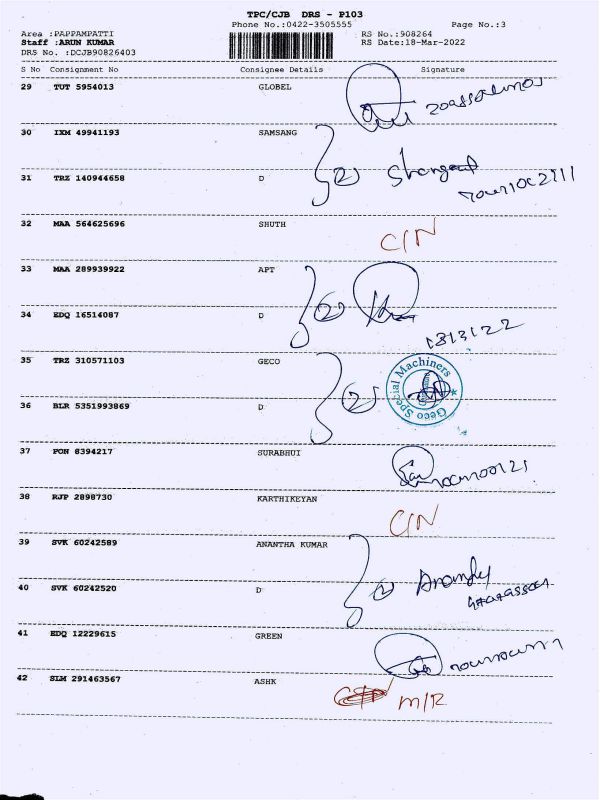 TPC/CJB DRS - P103
Phone No.:0422-3505555 Page No.:3
Area :PAPPAMPATTI RS No.:908264
Staff :ARUN KUMAR RS Date:18-Mar-2022
DRS No. :DCJB90826403
S No Consignment No Consignee Details Signature
29 TUT 5954013 GLOBEL
30 IXM 49941193 SAMSANG
31 TRZ 140944658 D
(2)
32 MAA 564625696 SHUTH
C/N
33 MAA 289939922 APT
34 EDQ 16514087 D
(2)
18/3/22
35 TRZ 310571103 GECO
Geco Special Machiners
36 BLR 5351993869 D
(2)
37 PON 8394217 SURABHUI
38 RJP 2898730 KARTHIKEYAN
C/N
39 SVK 60242589 ANANTHA KUMAR
40 SVK 60242520 D
(2)
41 EDQ 12229615 GREEN
42 SLM 291463567 ASHK
M/R